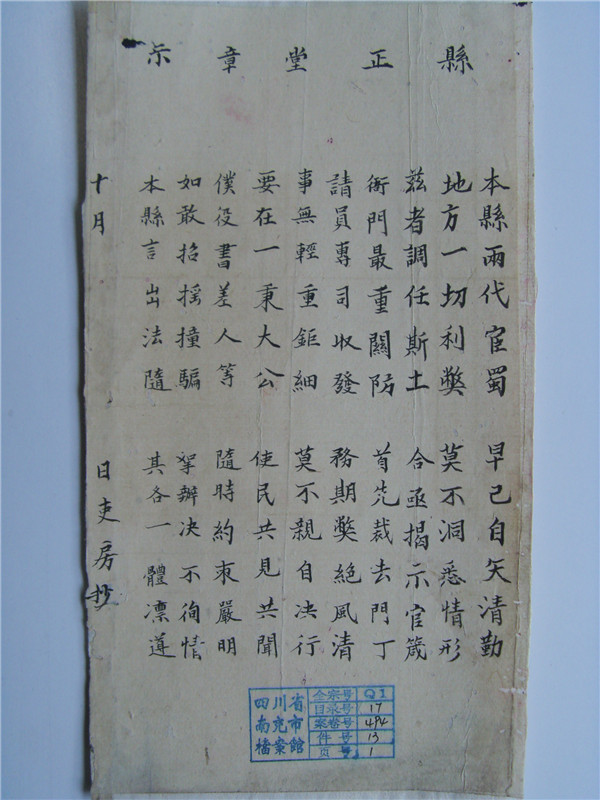 縣正堂章示
本縣兩代宦蜀 早已自矢清勤
地方一切利獘 莫不洞悉情形
茲者調任斯土 合亟揭示官箴
衙門最重關防 首先裁去門丁
請員專司收發 務期獘絕風清
事無輕重鉅細 莫不親自决行
要在一秉大公 使民共見共聞
僕役書差人等 隨時約束嚴明
如敢招搖撞騙 拏辦决不徇情
本縣言出法隨 其各一體凜遵
十月 日吏房抄
四川省
南充市
檔案館
全宗号 Q1
目录号 17
案卷号 494
件号 13
页号 1